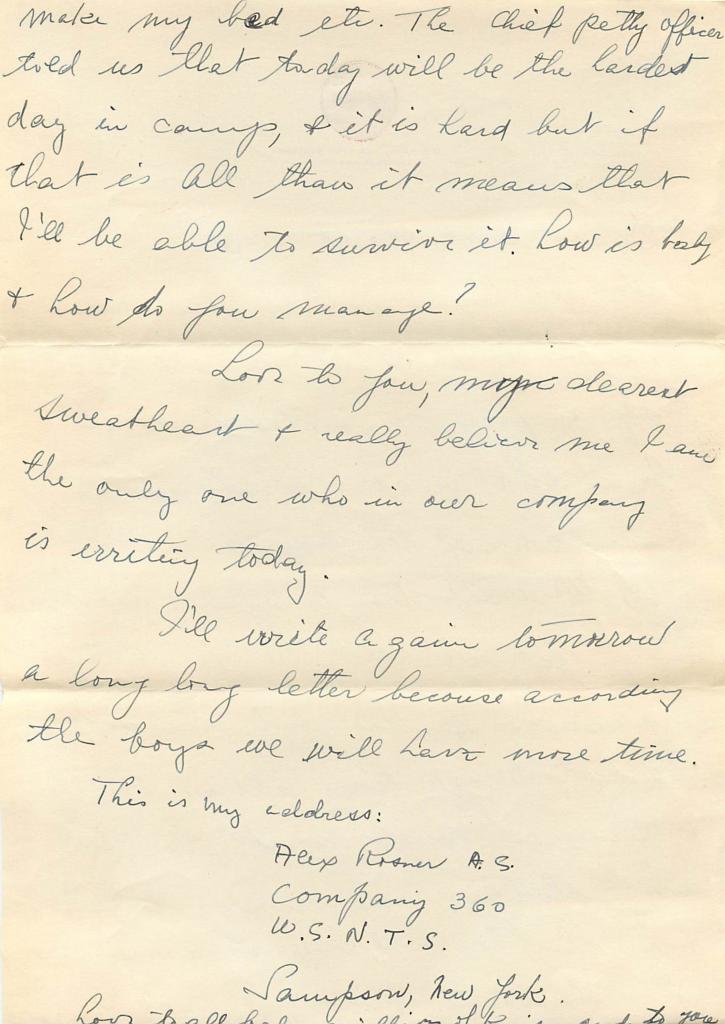 make my bed etc. The chief petty officer
told us that today will be the hardest
day in camp, & it is hard but if
that is all than it means that
I'll be able to survive it. how is baby
& how do you manage?
Love to you, my dearest
sweetheart & really believe me I am
the only one who in our company
is writing today.
I'll write again tomorrow
a long long letter because according
the boys we will have more time.
This is my address:
Alex Rosner A.S.
Company 360
U.S.N.T.S.
Sampson, New York.
Love to all
to you